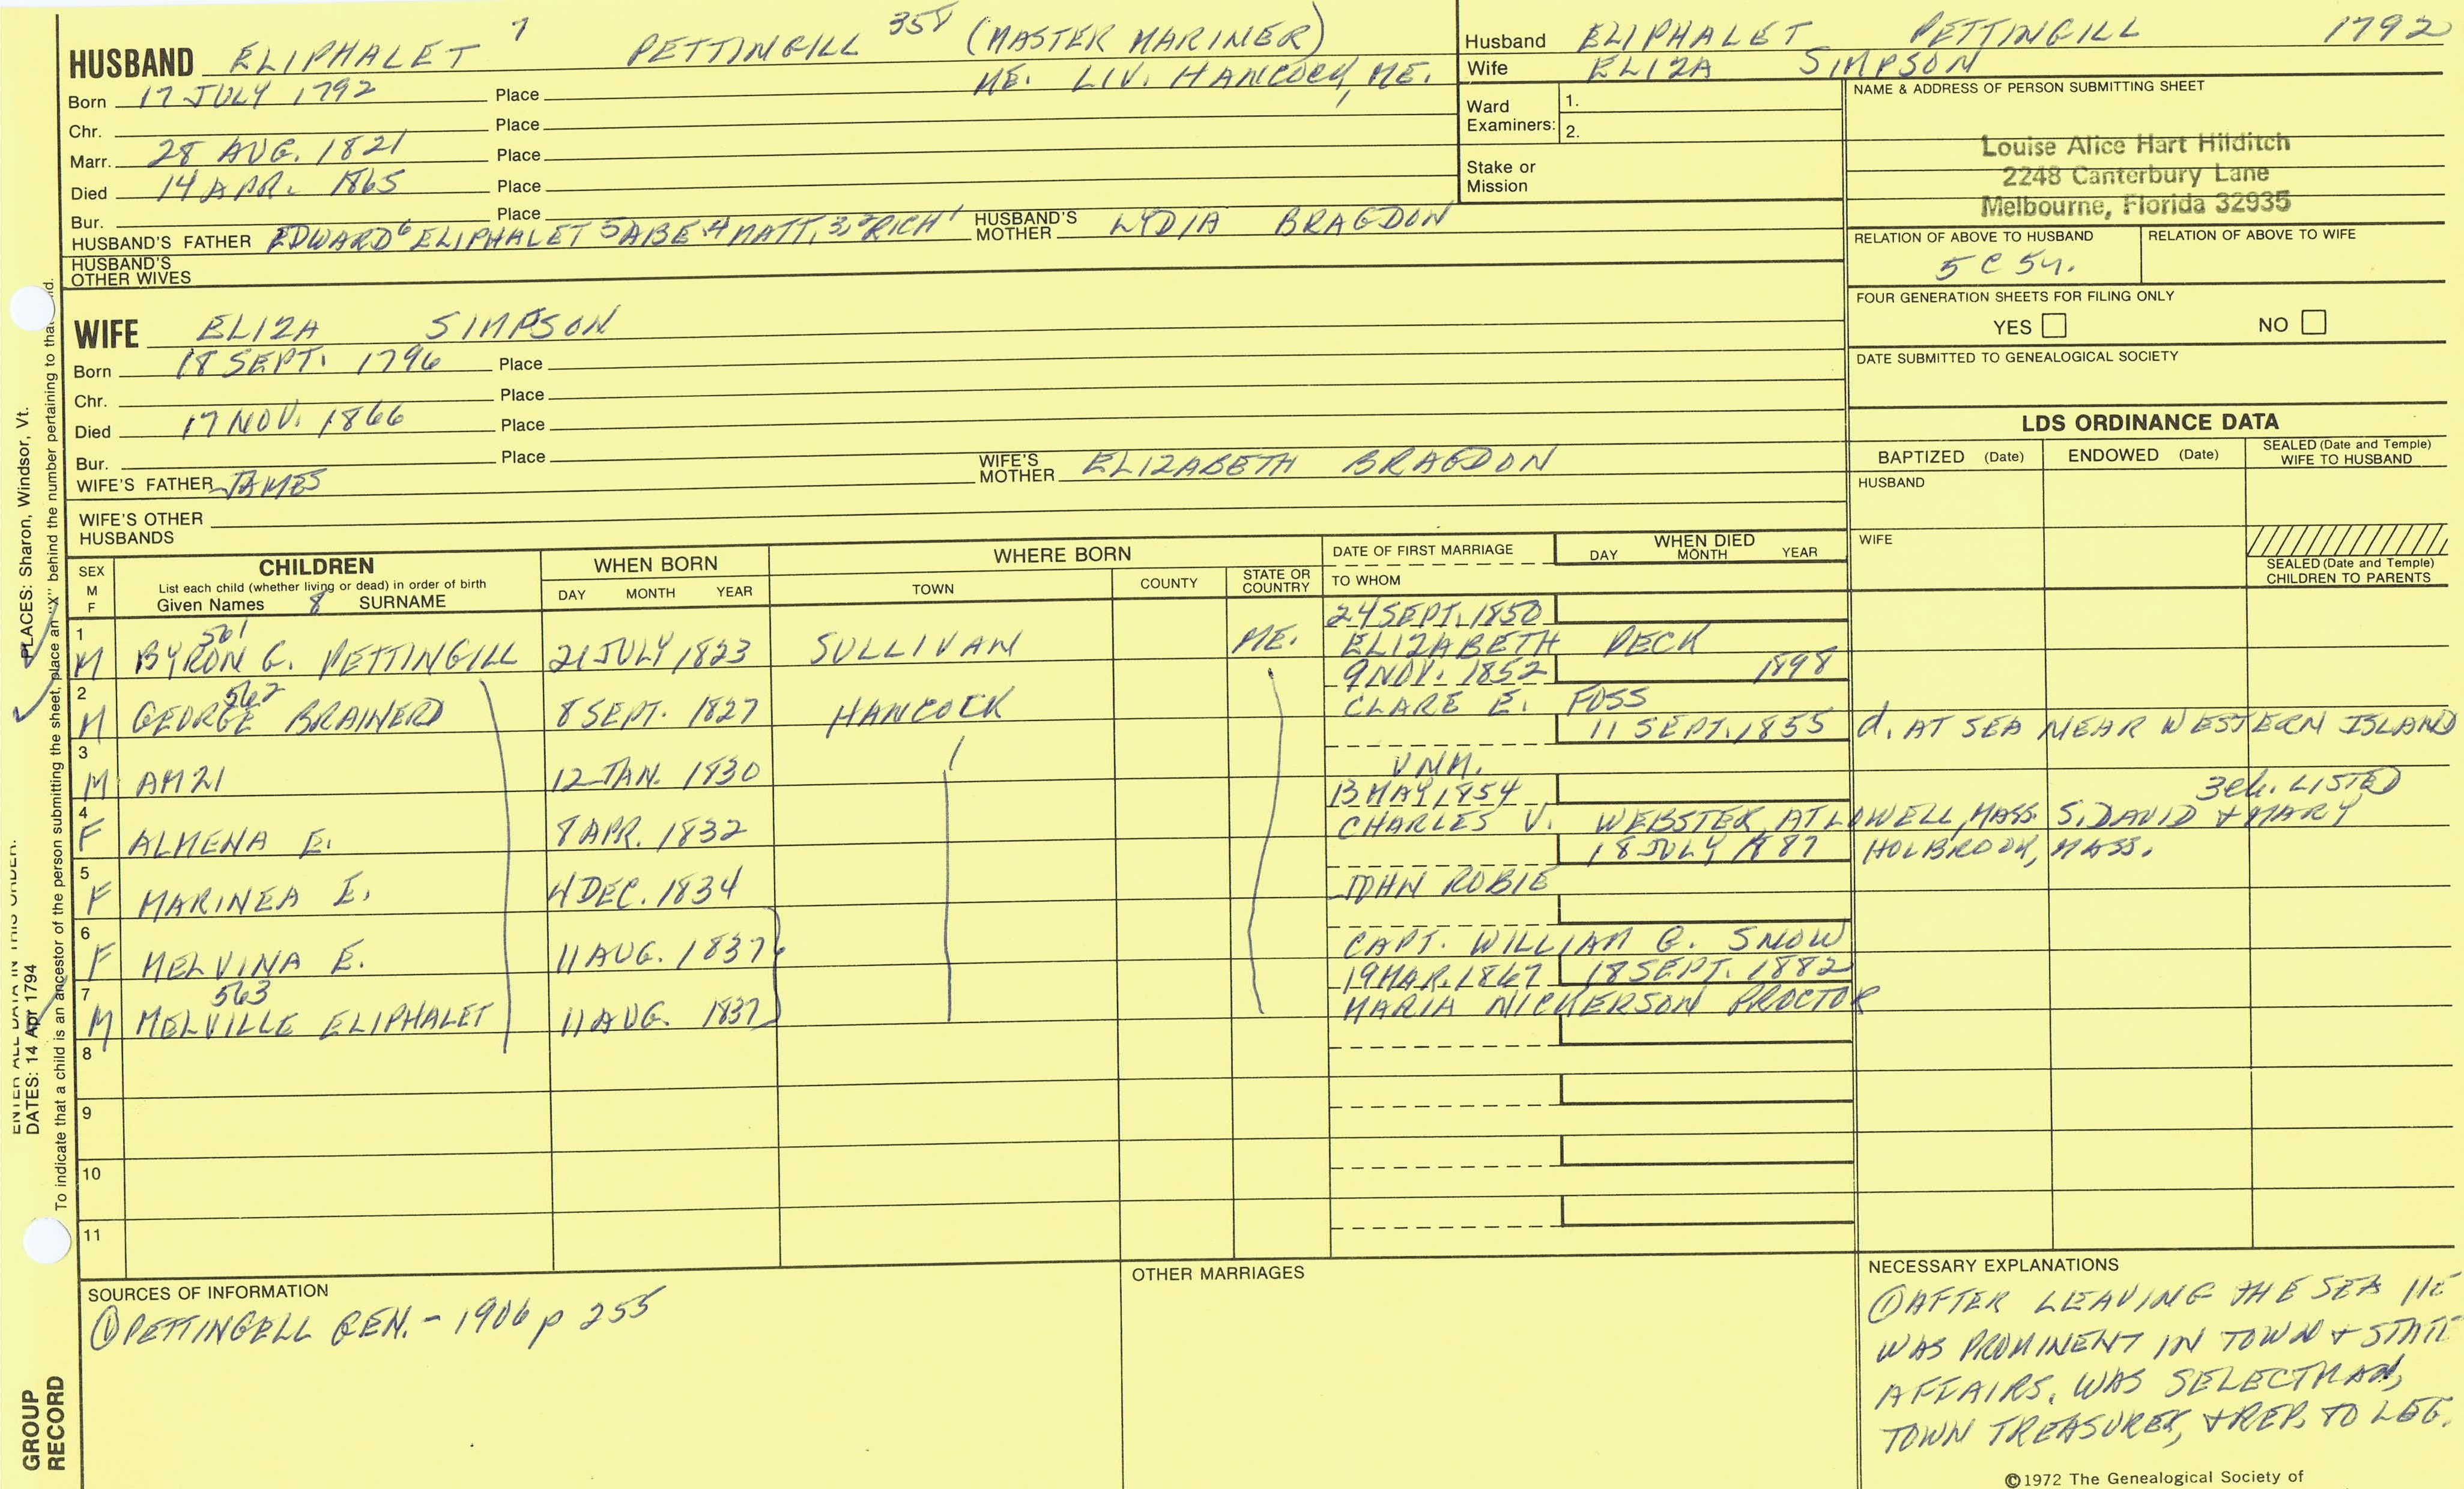 HUSBAND ELIPHALET 7 PETTINGILL 358 (MASTER MARINER)
Born 17 JULY 1792 Place ME. LIV. HANCOCK, ME.
Chr. Place
Marr. 28 AUG. 1821 Place
Died 14 APR. 1865 Place
Bur. Place
HUSBAND'S FATHER EDWARD6 ELIPHALET 5 ABE 4 MATT, 3,2 RICH 1 HUSBAND'S MOTHER LYDIA BRAGDON
HUSBAND'S OTHER WIVES
WIFE ELIZA SIMPSON
Born 18 SEPT. 1796 Place
Chr. Place
Died 17 NOV. 1866 Place
Bur. Place
WIFE'S FATHER JAMES WIFE'S MOTHER ELIZABETH BRAGDON
WIFE'S OTHER HUSBANDS
Husband ELIPHALET PETTINGILL 1792
Wife ELIZA SIMPSON
Ward Examiners: 1.
2.
Stake or Mission
NAME & ADDRESS OF PERSON SUBMITTING SHEET
Louise Alice Hart Hilditch
2248 Canterbury Lane
Melbourne, Florida 32935
RELATION OF ABOVE TO HUSBAND RELATION OF ABOVE TO WIFE
5 C 5
FOUR GENERATION SHEETS FOR FILING ONLY
YES NO
DATE SUBMITTED TO GENEALOGICAL SOCIETY
LDS ORDINANCE DATA
BAPTIZED (Date) ENDOWED (Date) SEALED (Date and Temple) WIFE TO HUSBAND
HUSBAND
WIFE
SEALED (Date and Temple) CHILDREN TO PARENTS
SEX M F
CHILDREN
List each child (whether living or dead) in order of birth
Given Names 8 SURNAME
WHEN BORN
DAY MONTH YEAR
WHERE BORN
TOWN COUNTY STATE OR COUNTRY
DATE OF FIRST MARRIAGE
TO WHOM
WHEN DIED
DAY MONTH YEAR
24 SEPT. 1850
1 M 561 BYRON G. PETTINGILL 21 JULY 1823 SULLIVAN ME. ELIZABETH PECK
9 NOV. 1852 1898
2 M 562 GEORGE BRAINERD 8 SEPT. 1827 HANCOCK CLARE E. FOSS
11 SEPT. 1855 d. AT SEA NEAR WESTERN ISLAND
3 M AMZI 12 JAN. 1830 UNM.
13 MAY 1854 3 ch. LISTED
4 F ALMENA E. 8 APR. 1832 CHARLES V. WEBSTER AT LOWELL, MASS. S. DAVID & MARY
18 JULY 1887 HOLBROOK, MASS.
5 F MARINEA I. 4 DEC. 1834 JOHN ROBIE
6 F MELVINA E. 11 AUG. 1837 CAPT. WILLIAM G. SNOW
19 MAR. 1867 18 SEPT. 1882
7 M 563 MELVILLE ELIPHALET 11 AUG. 1837 MARIA NICKERSON PROCTOR
8
9
10
11
SOURCES OF INFORMATION
① PETTINGELL GEN. - 1906 p 255
OTHER MARRIAGES
NECESSARY EXPLANATIONS
① AFTER LEAVING THE SEA HE
WAS PROMINENT IN TOWN & STATE
AFFAIRS. WAS SELECTMAN,
TOWN TREASURER, & REP. TO LEG.
©1972 The Genealogical Society of
PLACES: Sharon, Windsor, Vt.
To indicate that a child is an ancestor of the person submitting the sheet, place an "X" behind the number pertaining to that
ENTER ALL DATA IN THIS ORDER:
DATES: 14 Apr 1794
GROUP RECORD